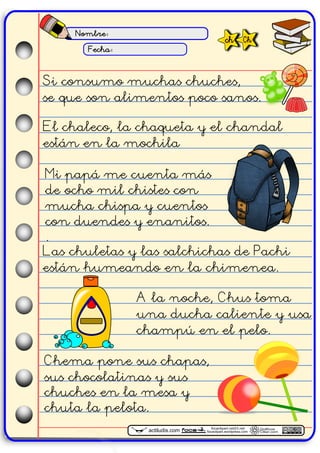 Nombre:
Fecha:
ch Ch
Si consumo muchas chuches,
se que son alimentos poco sanos.
El chaleco, la chaqueta y el chandal
están en la mochila
Mi papá me cuenta más
de ocho mil chistes con
mucha chispa y cuentos
con duendes y enanitos.
.
Las chuletas y las salchichas de Pachi
están humeando en la chimenea.
A la noche, Chus toma
una ducha caliente y usa
champú en el pelo.
Chema pone sus chapas,
sus chocolatinas y sus
chuches en la mesa y
chuta la pelota.
actiludis.com